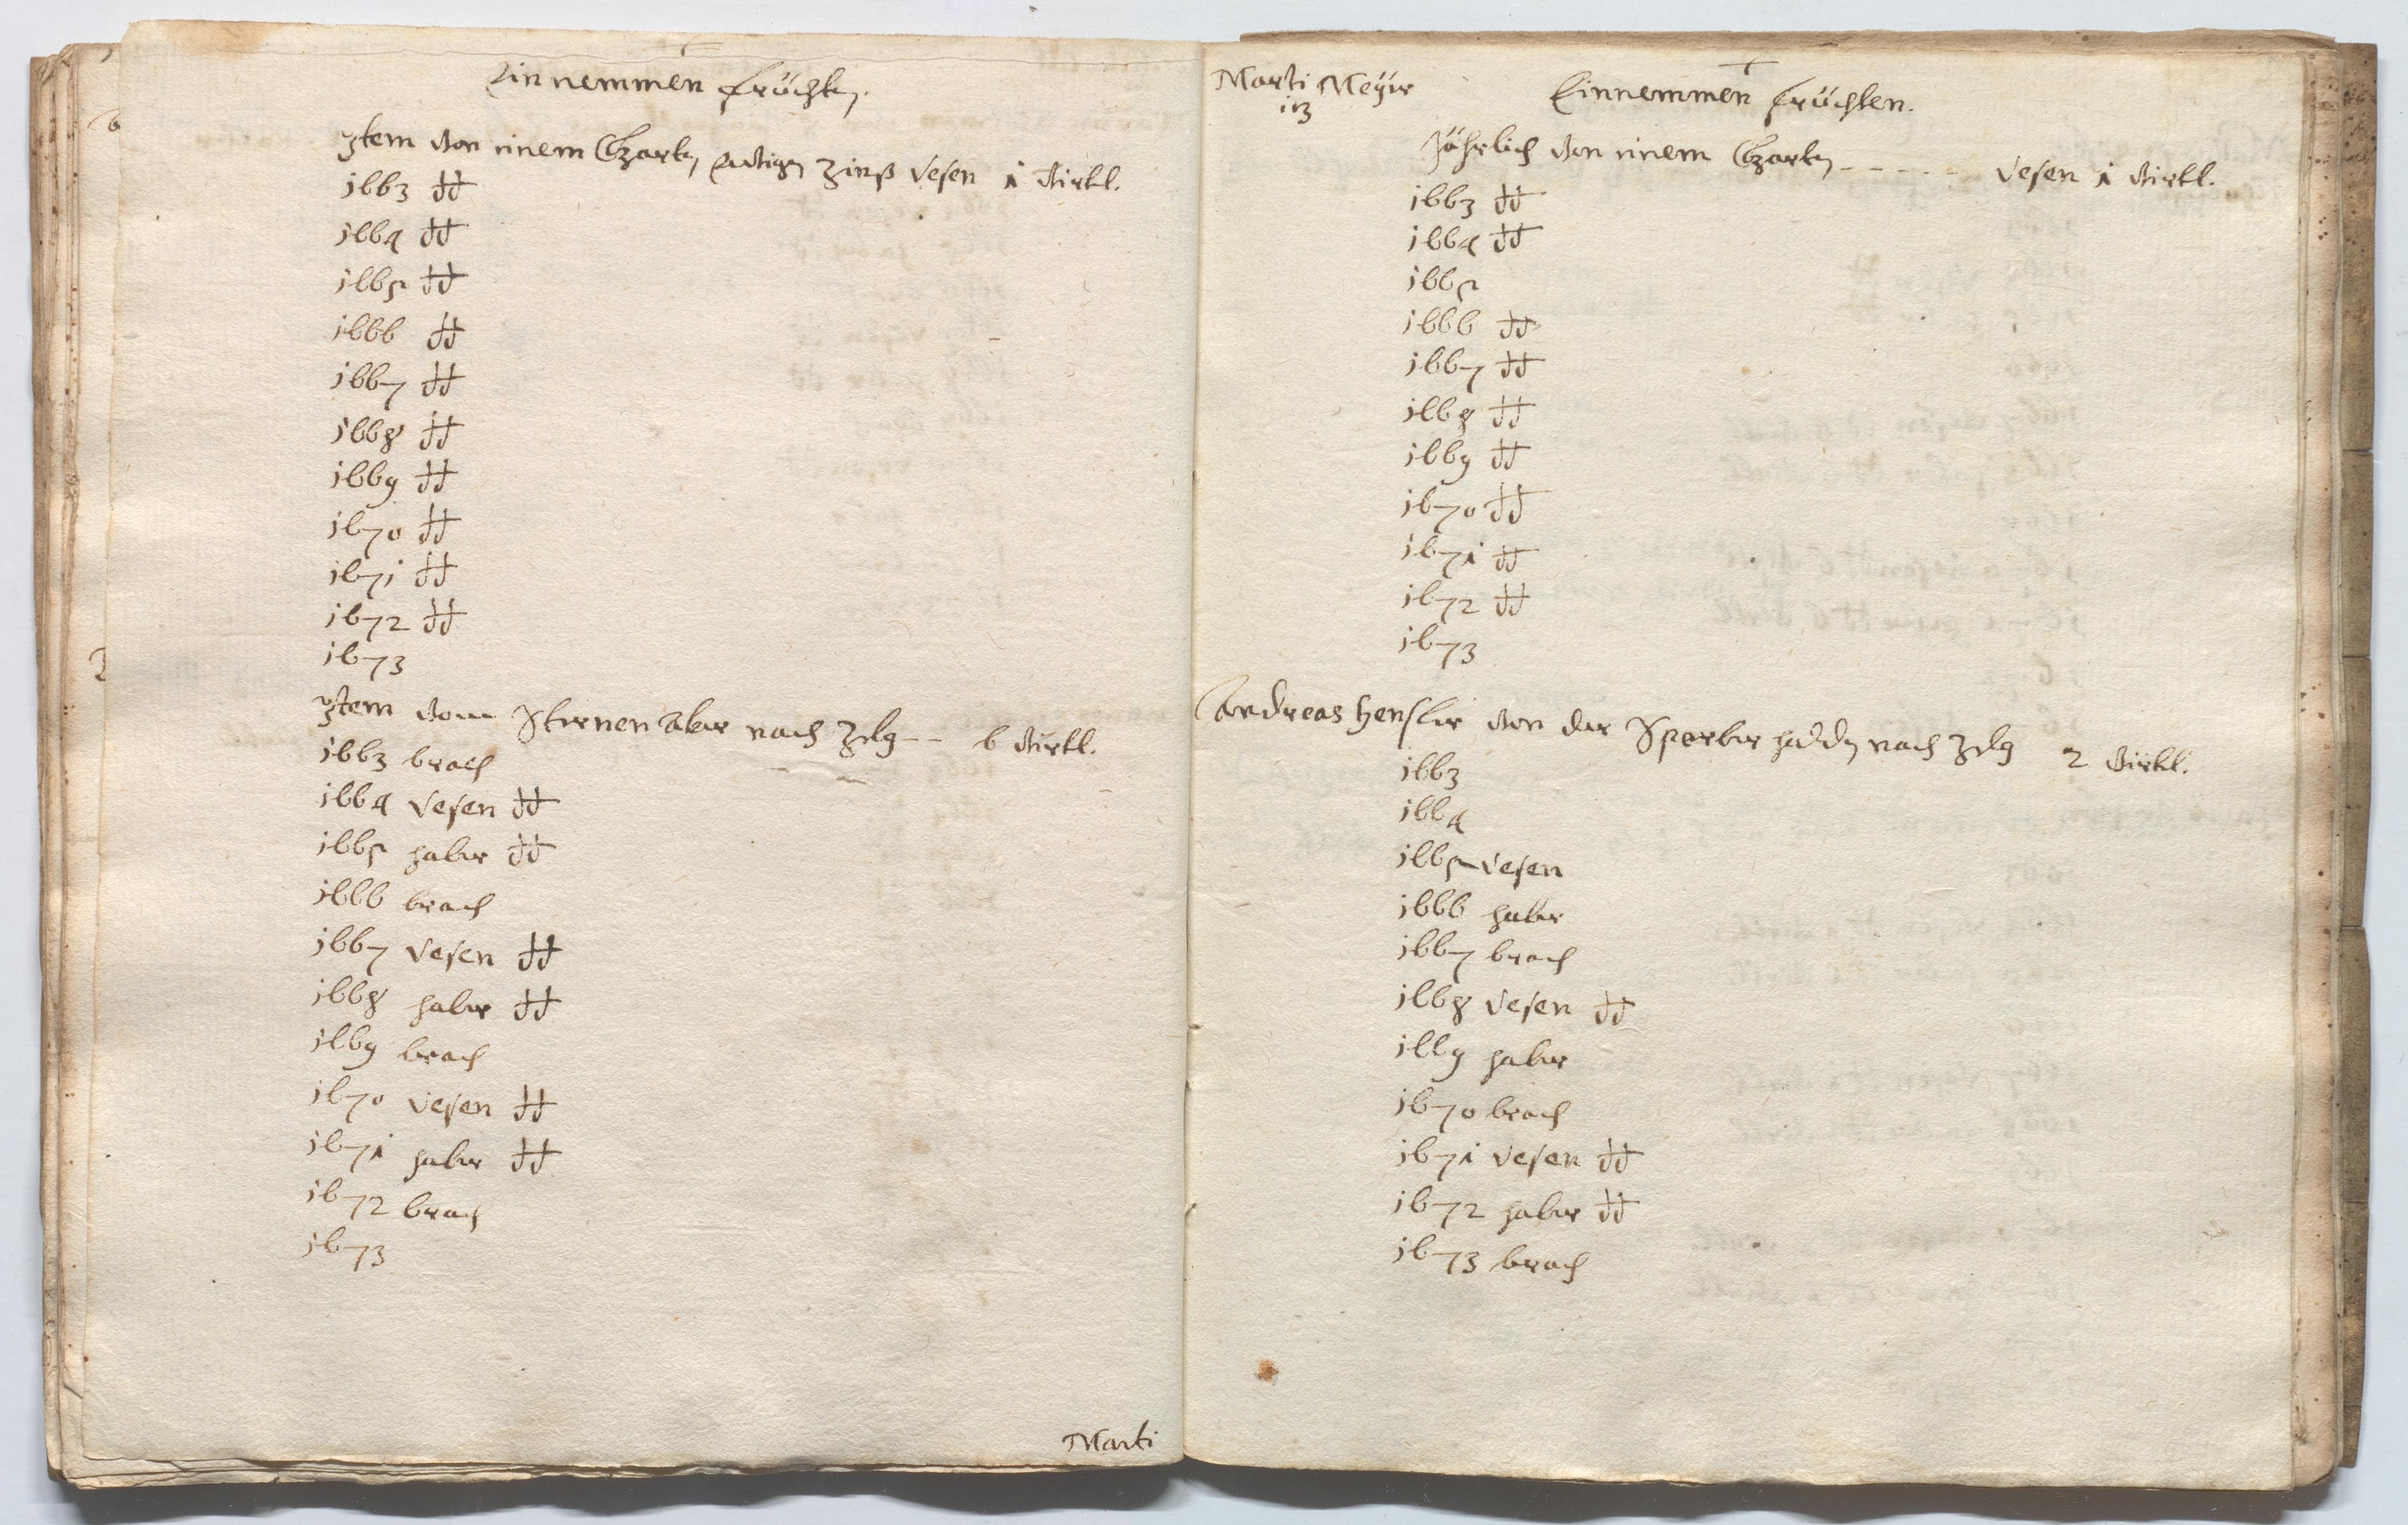 Einnemmen früchten.
Item von einem Garten Ewigen Zinß Vesen 1 Viertl.
1663 dd
1664 dd
1665 dd
1666 dd
1667 dd
1668 dd
1669 dd
1670 dd
1671 dd
1672 dd
1673
Item vom Sternen aker nach Zelg -- 6 Viertl.
1663 brach
1664 Vesen dd
1665 haber dd
1666 brach
1667 Vesen dd
1668 haber dd
1669 brach
1670 Vesen dd
1671 haber dd
1672 brach
1673
Marti
Marti Meyer Einnemmen früchten.
Jährlich von einem Garten ----- Vesen 1 Viertl.
1663 dd
1664 dd
1665
1666 dd
1667 dd
1668 dd
1669 dd
1670 dd
1671 dd
1672 dd
1673
Andreas Hensler von der nach Zelg 2 Viertl.
1663
1664
1665 Vesen
1666 haber
1667 brach
1668 Vesen dd
1669 haber
1670 brach
1671 Vesen dd
1672 haber dd
1673 brach